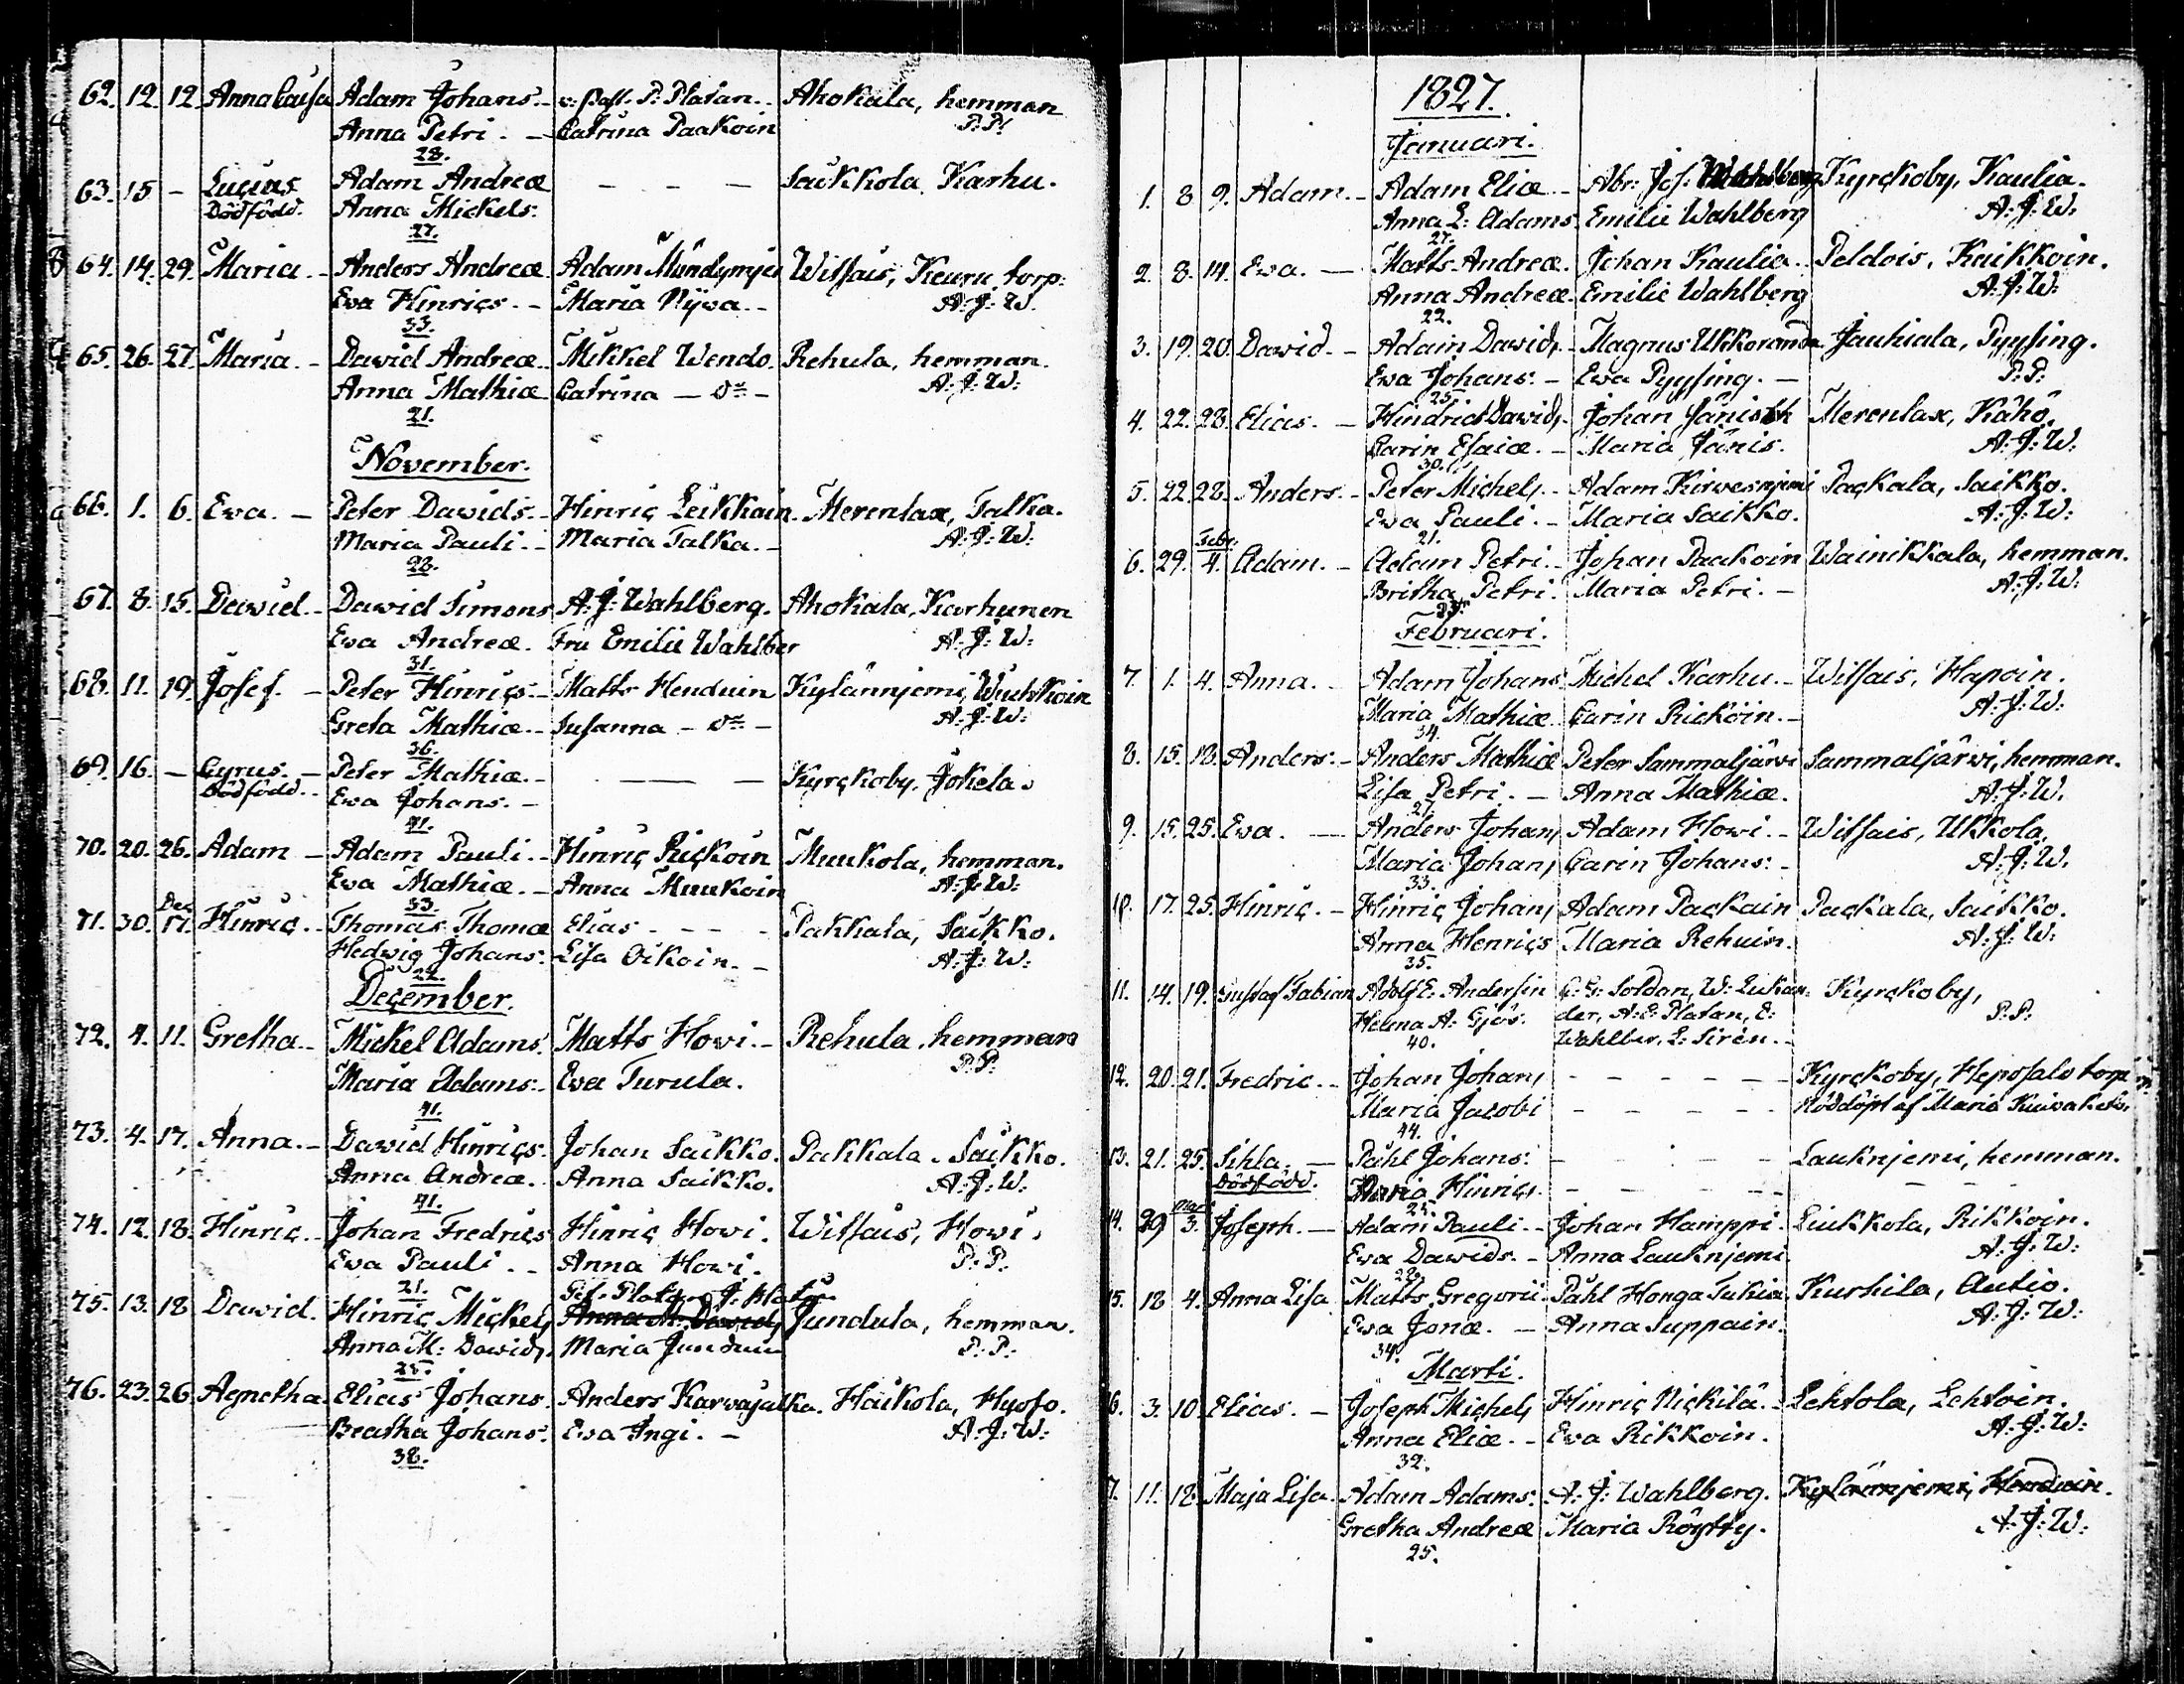 62. 12. 12. Anna Caisa Adam Johans. v. Past. P. Platan. Ahokala, hemman
Anna Petri. Catrina Paakoin P: P:
28.
63. 15 - Lucius Adam Andreæ - - - Saikkola, Karhu.
Dödfödd. Anna Mickels.
27.
64. 14. 29. Maria. Anders Andreæ Wilsais, Keuru torp.
Ewa Hinrics. Maria A: J: W.
33.
65. 26. 27. Maria. Dawid Andreæ. Mikkel Wendo. Rehula, hemman.
Anna Mathiæ Catrina — do — A: J: W:
21.
November.
66. 1. 6. Ewa. Peter Dawids. Hinric Leikkain. Merenlax, Talka.
Maria Pauli. Maria Talka. A: J: W:
28.
67. 8. 15. Dawid. Dawid Simons A: J: Wahlberg. Ahokala, Karhunen
Ewa Andreæ. Fru Emilie Wahlber A: J: W:
31.
68. 11. 19. Josef. Peter Hinrics. Matts Henduin Kylännjemi,
Greta Mathiæ. Susanna — do — A: J: W:
36.
69. 16. — Cyrus. Peter Mathiæ. — — Kyrckoby, Jokela.
Dödfödd. Ewa Johans.
41.
70. 20. 26. Adam Adam Pauli. Hinric Rickoin Muukola, hemman.
Ewa Mathiæ. Anna Muukoin A: J: W:
33.
Dec.
71. 30. 17. Hinric. Thomas Thomæ Elias - - - Pakkala, Saikko.
Hedwig Johans. Lisa Oikoin. A: J: W:
22.
December.
72. 4. 11. Gretha. Mickel Adams. Matts Howi. Rehula, hemman
Maria Adams. Ewa Turula. P: P:
41.
73. 4. 17. Anna. Dawid Hinrics. Johan Saikko. Pakkala, Saikko.
Anna Andreæ. Anna Saikko. A: J: W:
41.
74. 12. 18. Hinric. Johan Fredrics Hinric Howi. Wilsais, Howi.
Ewa Pauli. Anna Howi. P: P:
21.
75. 13. 18 Dawid. Hinric Mickels Anna M: Dawids Jundula, hemman.
Anna M: Dawids. Maria P: P:
25.
76. 23. 26. Agnetha Elias Johans. Anders Karwajalka. Haikola, Hyoto.
Beatha Johans. Ewa Ingi. A: J: W:
38.
1827.
Januari.
1. 8 9. Adam. Adam Eliæ Abr: Jos: Wahlberg Kyrckoby, Kaulia.
Anna L: Adams. Emilie Wahlberg A: J: W:
27.
2. 8. 14. Ewa. Matts Andreæ. Johan Kaulia. Peldois, Kaikkoin.
Anna Andreæ. Emilie Wahlberg A: J: W:
22.
3. 19. 20. Dawid. Adam Dawids. Magnus Ukkoranda Jauhiala, Pyysing.
Ewa Johans. Ewa Pyysing. P: P:
25.
4. 22. 28. Elias. Hindric Dawids. Johan Merenlax, Kähö.
Carin Esaiæ. Maria Jänis. A: J: W:
30.
5. 22. 28. Anders. Peter Michels. Adam Kirwesnjemi Packala, Saikko.
Ewa Pauli. Maria Saikko. A: J: W:
21.
Febr.
6. 29. 4. Adam. Adam Petri. Johan Paakoin Wainikkala, hemman.
Britha Petri. Maria Petri. A: J: W:
Februari.
7. 1. 4. Anna. Adam Johans Michel Karhu. Wilsais, Hapoin.
Maria Mathiæ. Carin Rickoin. A: J: W:
34.
8. 15. 18. Anders. Anders Mathiæ Peter Sammaljärwi Sammaljärwi, hemman.
Lisa Petri. Anna Mathiæ. A: J: W.
27.
9. 15. 25. Ewa. Anders Johans Adam Howi. Wilsais, Ukkola.
Maria Johans Carin Johans. A: J: W.
33.
10. 17. 25. Hinric. Hinric Johans Adam Packain Packala, Saikko.
Anna Henrics Maria Rehuin. A: J: W:
35.
11. 14. 19. Gustaf Fabian Adolf E: Andersin Soldan, W: Lukan- Kyrckoby,
Helena A: der, A: E: Platan, E: P: P:
40. Wahlber, L: Sirén.
12. 20. 21. Fredric. Johan Johans - - - - Kyrckoby, Heposalo torp
Maria Jacobi - - - - Nöddöpt af Maria
44.
13. 21. 25. Sihla. Påhl Johans. - - - - Lauknjemi, hemman.
Dödfödd. Maria Hinrics. - - - -
25.
Mart.
14. 29 3. Joseph. Adam Pauli. Johan Hamppi. Liukkola, Rikkoin.
Ewa Dawids. Anna Lauknjemi. A: J: W:
22.
15. 12 4. Anna Lisa. Matts Gregorii. Påhl Honga Tukia. Kurhila, Autio.
Ewa Jonæ. Anna Suppain. A: J: W:
34.
Marti.
16. 3. 10. Elias. Joseph Michels Hinric Nickilä. Lehtola, Lehtoin.
Anna Eliæ. Ewa Rikkoin. A: J: W:
32.
17. 11. 12. Maja Lisa. Adam Adams. A: J: Wahlberg. Kylännjemi, Henduin.
Gretha Andreæ Maria Röytty. A: J: W:
25.